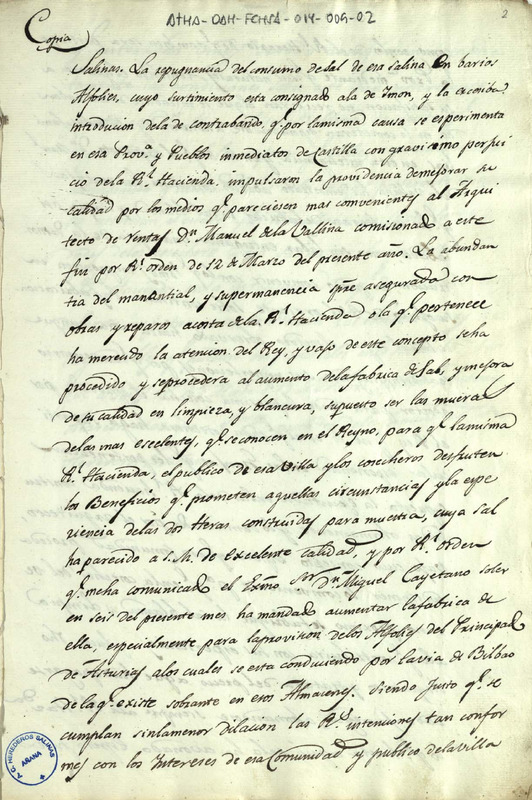 ATHA-DAH-FCHSA-014-009-02
2
Copia
Salinas. La repugnancia del consumo de sal de esa salina en barios
Alfolies, cuyo surtimiento esta consignado ala de Imon, y la excesiba
introducion dela de contrabando, qe. por lamisma causa se esperimenta
en esa Prova. y Pueblos inmediatos de Castilla con gravisimo perjui
cio dela Rl. Hacienda, impulsaron la providencia demejorar su
calidad por los medios qe. pareciesen mas convenientes al Arqui
tecto de rentas Dn. Manuel dela Vallina comisionado a este
fin por Rl. orden de 12 de Marzo del presente año. La abundan
tia del manantial, y supermanencia pre. asegurada con
obras y reparos acosta dela Rl. Hacienda ala qe. pertenece
ha merecido la atencion del Rey, y vajo de este concepto seha
procedido y seprocederá al aumento dela fabrica de Sal, y mejora
de su calidad en limpieza, y blancura, supuesto ser las mueras
delas mas escelentes, qe. seconocen en el Reyno, para qe. lamisma
Rl. Hacienda, el publico de esa Villa y los cosecheros desfruten
los Beneficios qe. prometen aquellas circunstancias y la espe
riencia delas dos Heras construidas para muestra, cuya sal
ha parecido a S. M. de excelente calidad, y por Rl. orden
qe. meha comunicado el Exmo. Sor. Dn. Miguel Cayetano soler
en seis del presente mes ha mandado aumentar lafabrica de
ella, especialmente para laprovision delos Alfolies del Principado
de Asturias alos cuales se esta conduciendo por lavia de Bilbao
dela qe. existe sobrante en esos Almacenes. Siendo Justo qe. se
cumplan sinlamenor dilacion las Rs. intenciones tan confor
mes con los Intereses de esa Comunidad y publico dela Villa
A.C. HEREDEROS SALINAS
AÑANA